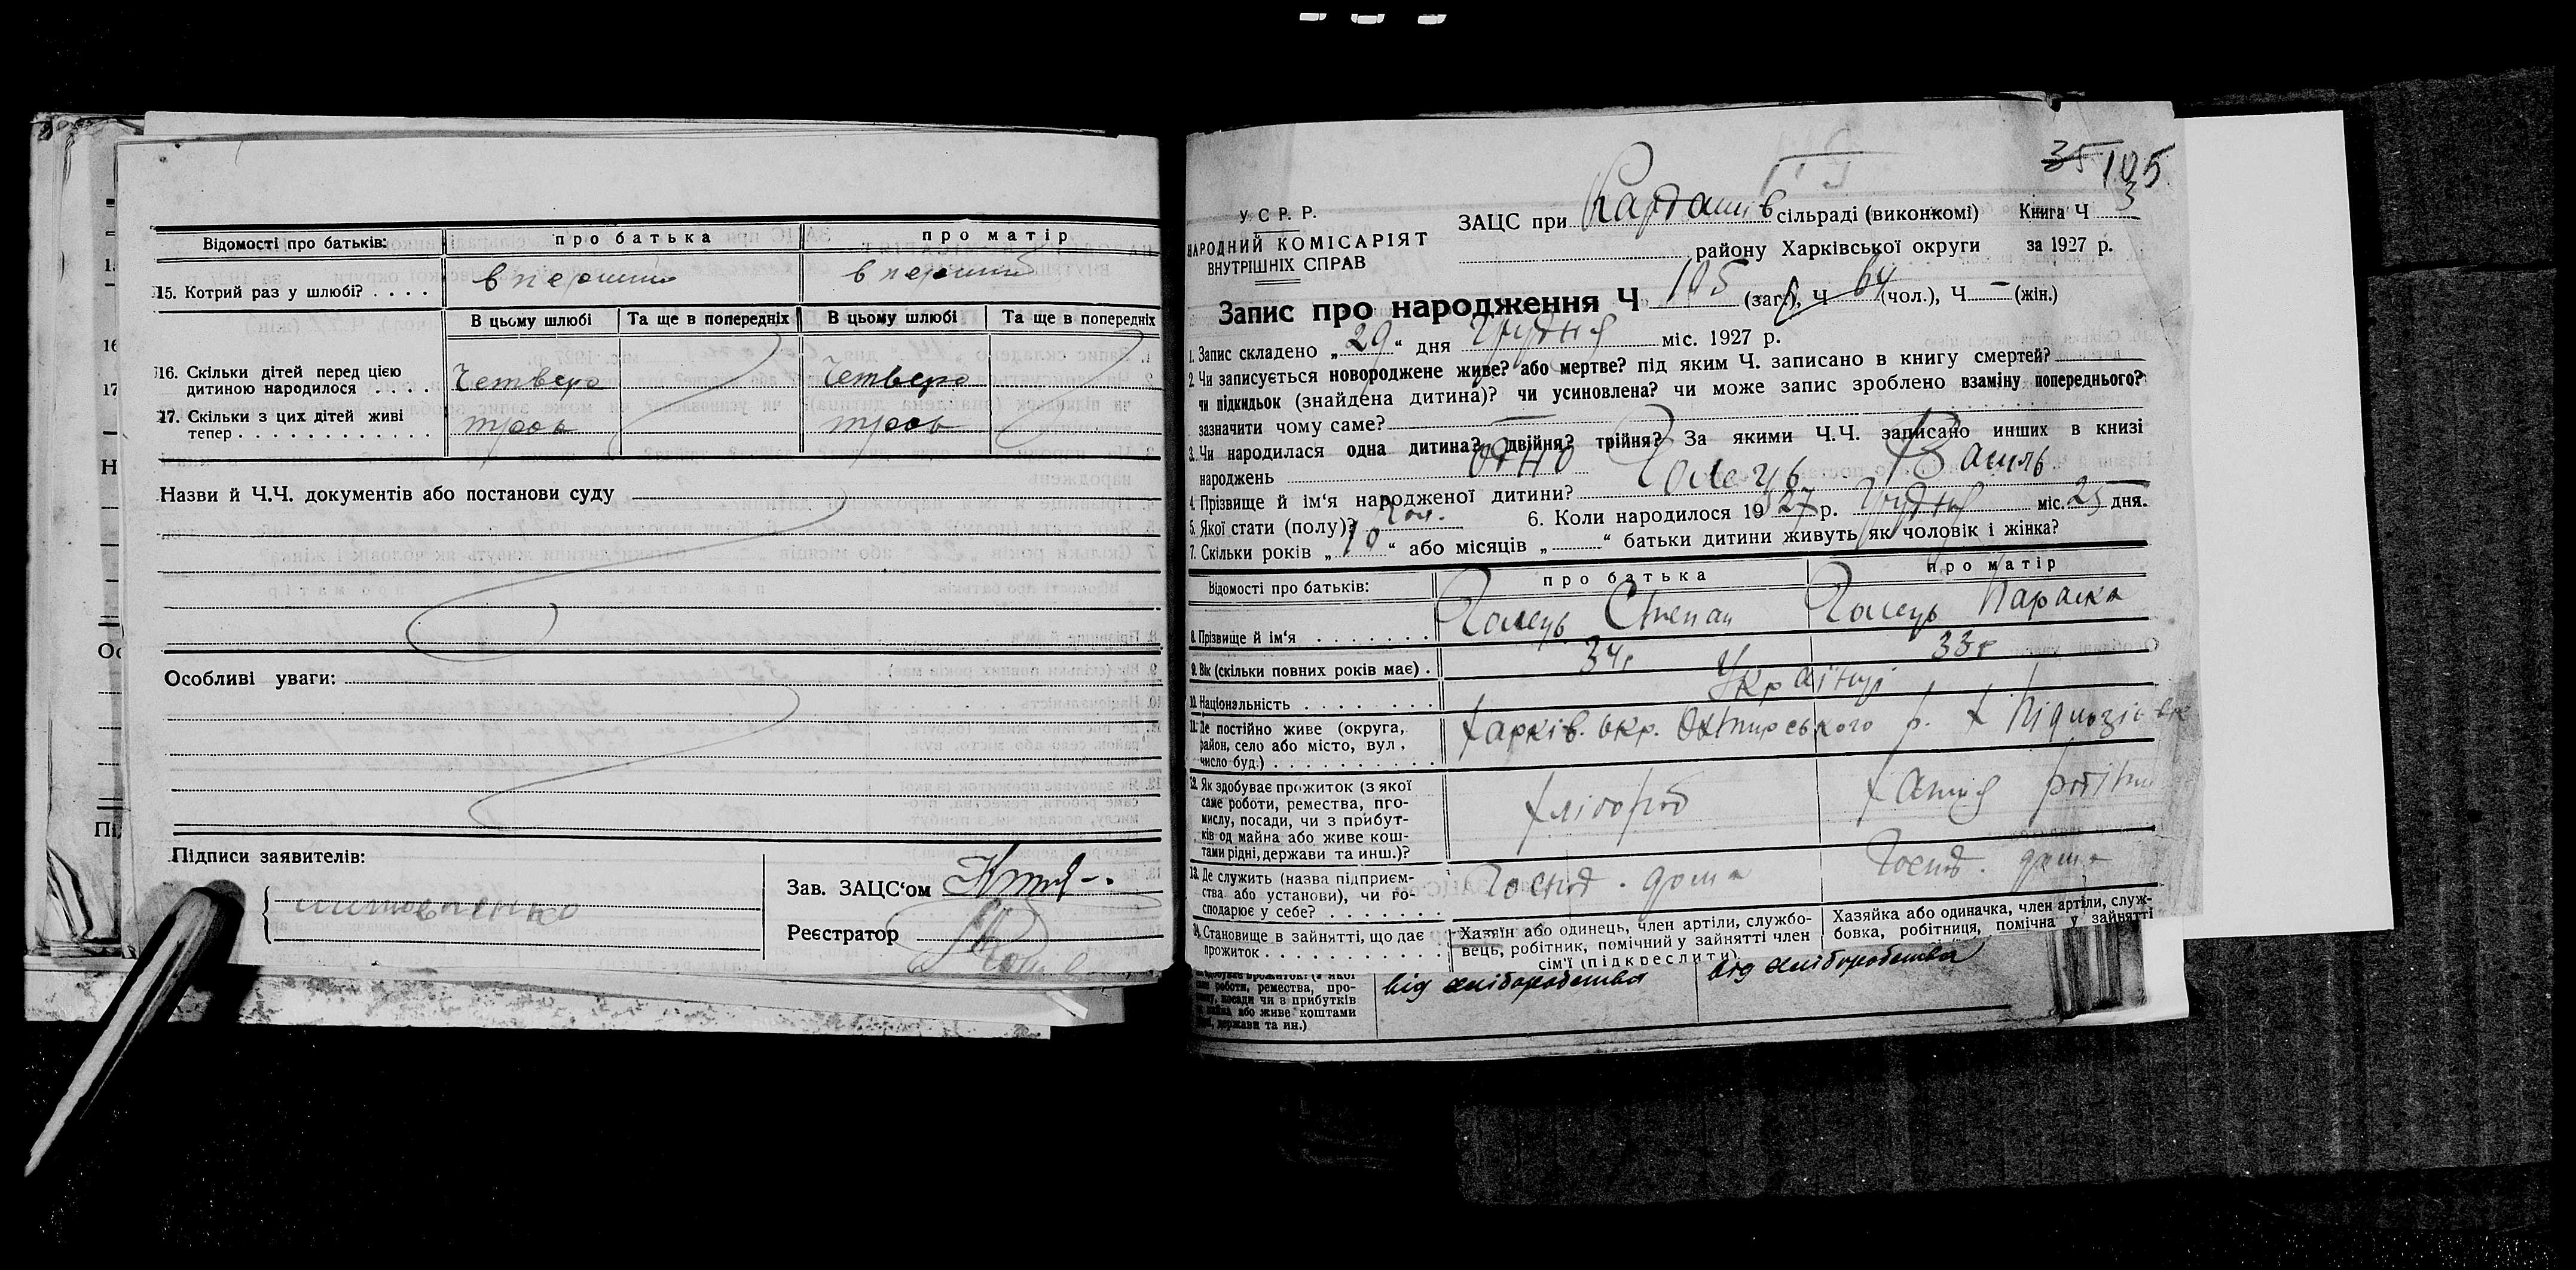 Відомості про батьків: про батька про матір
15. Котрий раз у шлюбі? . . . . вперший вперший
В цьому шлюбі Та ще в попередніх В цьому шлюбі Та ще в попередніх
16. Скільки дітей перед цією
дитиною народилося . . . . Четверо Четверо
17. Скільки з цих дітей живі
тепер . . . . . . . . . . . . троє троє
Назви й Ч.Ч. документів або постанови суду
Особливі уваги:
Підписи заявителів:
Зав. ЗАЦС‘ом
Реєстратор
35 105
У С Р. Р.
НАРОДНИЙ КОМІСАРІЯТ
ВНУТРІШНІХ СПРАВ
ЗАЦС при Кардашів сільраді (виконкомі) Книга Ч 3
району Харківської округи за 1927 р.
Запис про народження Ч 105 (заг.), Ч 64 (чол.), Ч – (жін.)
1. Запис складено „29“ дня Грудня міс. 1927 р.
2. Чи записується новороджене живе? або мертве? під яким Ч. записано в книгу смертей?
чи підкидьок (знайдена дитина)? чи усиновлена? чи може запис зроблено взаміну попереднього?
зазначити чому саме? —
3. Чи народилася одна дитина? двійня? трійня? За якими Ч.Ч. записано инших в книзі
народжень одно
4. Прізвище й ім‘я народженої дитини? Голець Василь
5. Якої стати (полу)? Чол. 6. Коли народилося 1927 р. Грудня міс. 25 дня.
7. Скільки років „10“ або місяців „ “ батьки дитини живуть як чоловік і жінка?
Відомості про батьків: про батька про матір
8. Прізвище й ім‘я . . . . . . . Голець Степан Голець Параска
9. Вік (скільки повних років має) . 34р 33р
10. Національність . . . . . . . . Українці
11. Де постійно живе (округа,
район, село або місто, вул.,
число буд.) . . . . . . . . . . Харків. окр. Охтирського р. х
12. Як здобуває прожиток (з якої
саме роботи, ремества, про-
мислу, посади, чи з прибут-
ків од майна або живе кош-
тами рідні, держави та инш.)? хлібороб хатня робітни
13. Де служить (назва підприєм-
ства або установи), чи го-
сподарює у себе? . . . . . . . Госпд. дома Госпд. дома
14. Становище в зайнятті, що дає
прожиток . . . . . . . . . . .
Хазяїн або одинець, член артіли, службо-
вець, робітник, помічний у зайнятті член
сім‘ї (підкреслити)
Хазяйка або одиначка, член артіли, служ-
бовка, робітниця, помічна у зайнятті
роботи, ремества, про-
посади чи з прибутків
або живе коштами
держави та ин.)
від хліборобства від хліборобства